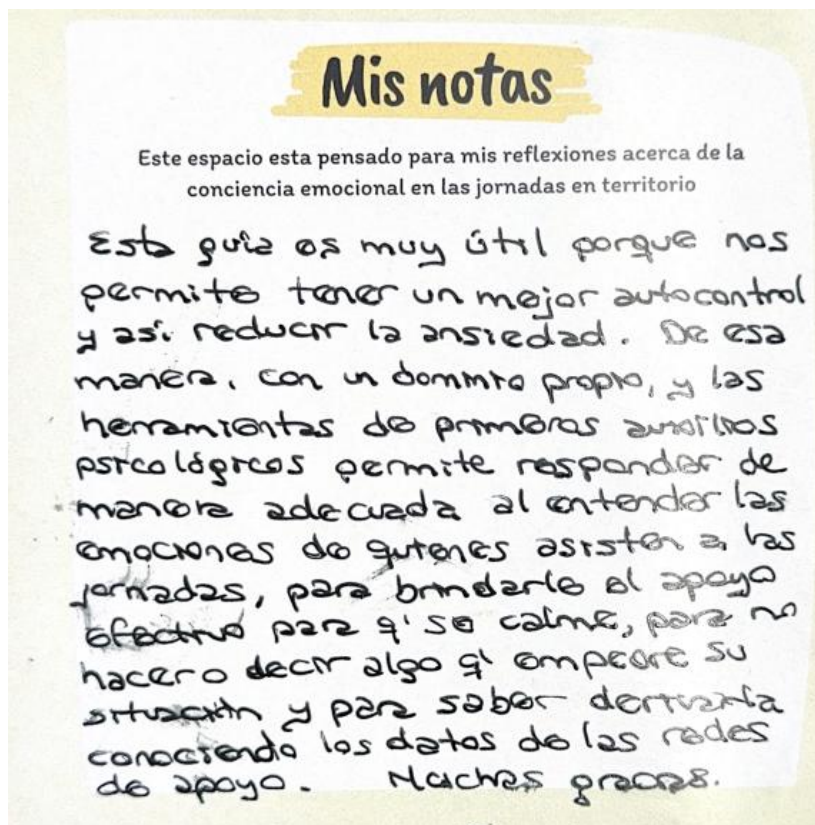 Mis notas
Este espacio esta pensado para mis reflexiones acerca de la
conciencia emocional en las jornadas en territorio
Esta guía es muy útil porque nos
permite tener un mejor autocontrol
y así reducir la ansiedad. De esa
manera, con un dominio propio, y las
herramientas de primeros auxilios
psicológicos permite responder de
manera adecuada al entender las
emociones de quienes asisten a las
jornadas, para brindarle el apoyo
efectivo para q' se calme, para no
hacer o decir algo q' empeore su
situación y para saber derivarla
conociendo los datos de las redes
de apoyo. Muchas gracias.